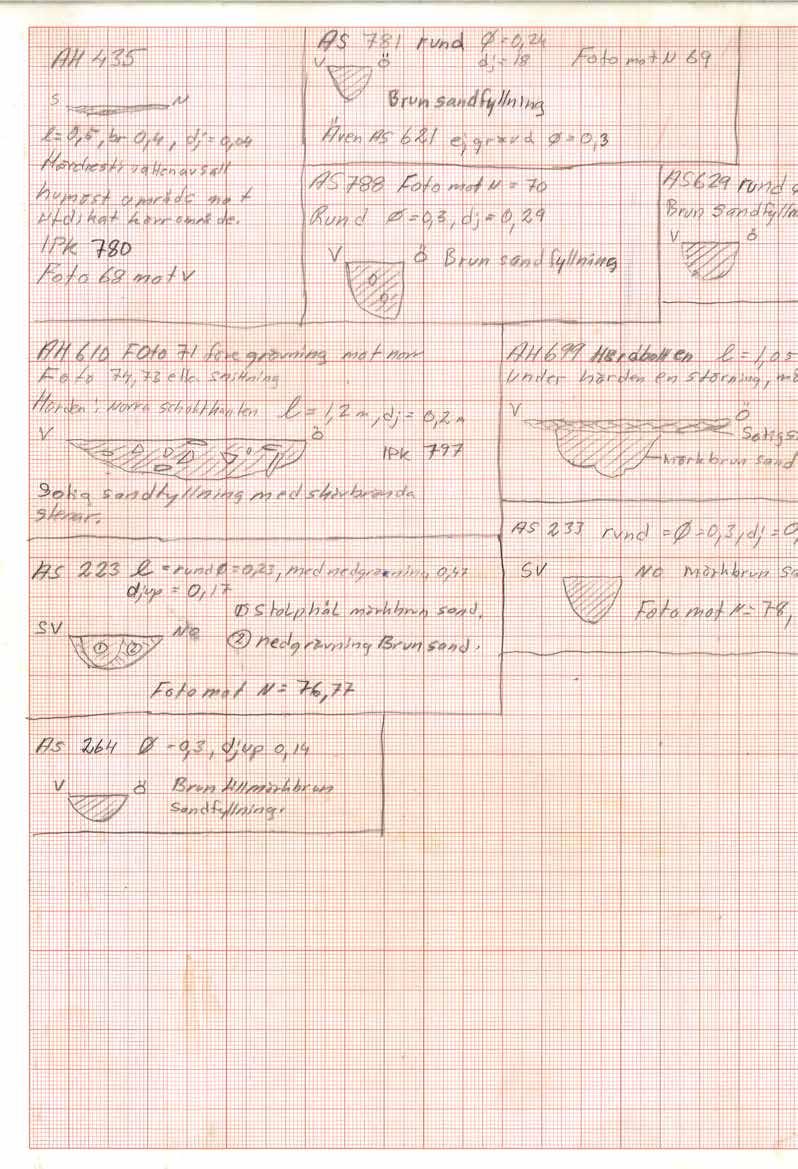 AH 435
S N
l=0,5, br 0,4, dj=0,04
Härdrest i vattenavsatt
humöst område mot
utdikat kärrområde.
IPK 780
Foto 68 mot V
AS 781 rund Ø=0,24
dj=18
Foto mot N 69
V Ö
Brun sandfyllning
Även AS 621 ej grävd Ø=0,3
AS 788 Foto mot N = 70
Rund Ø=0,3, dj=0,29
V Ö Brun sandfyllning
AS 629 rund
Brun Sandfylln
V Ö
AH 610 FOTO 71 före grävning mot norr
Foto 74, 73 efter snittning
Härden i norra schaktkanten l=1,2 m, dj=0,2 m
V Ö
IPK 797
Sotig sandfyllning med skärbrända
stenar.
AH 699 Härdbotten l=1,05
Under härden en störning, mö
V Ö
Sotigs
mörkbrun sand
AS 223 l=rund Ø=0,23, med nedgrävning 0,47
djup=0,17
① Stolphål mörkbrun sand.
SV NO
② nedgrävning Brun sand.
① ②
Foto mot N = 76,77
AS 233 rund = Ø=0,3, dj=0,
SV NO mörkbrun sa
Foto mot N = 78,
AS 264 Ø =0,3, djup 0,14
V Ö
Brun till mörkbrun
Sandfyllning.